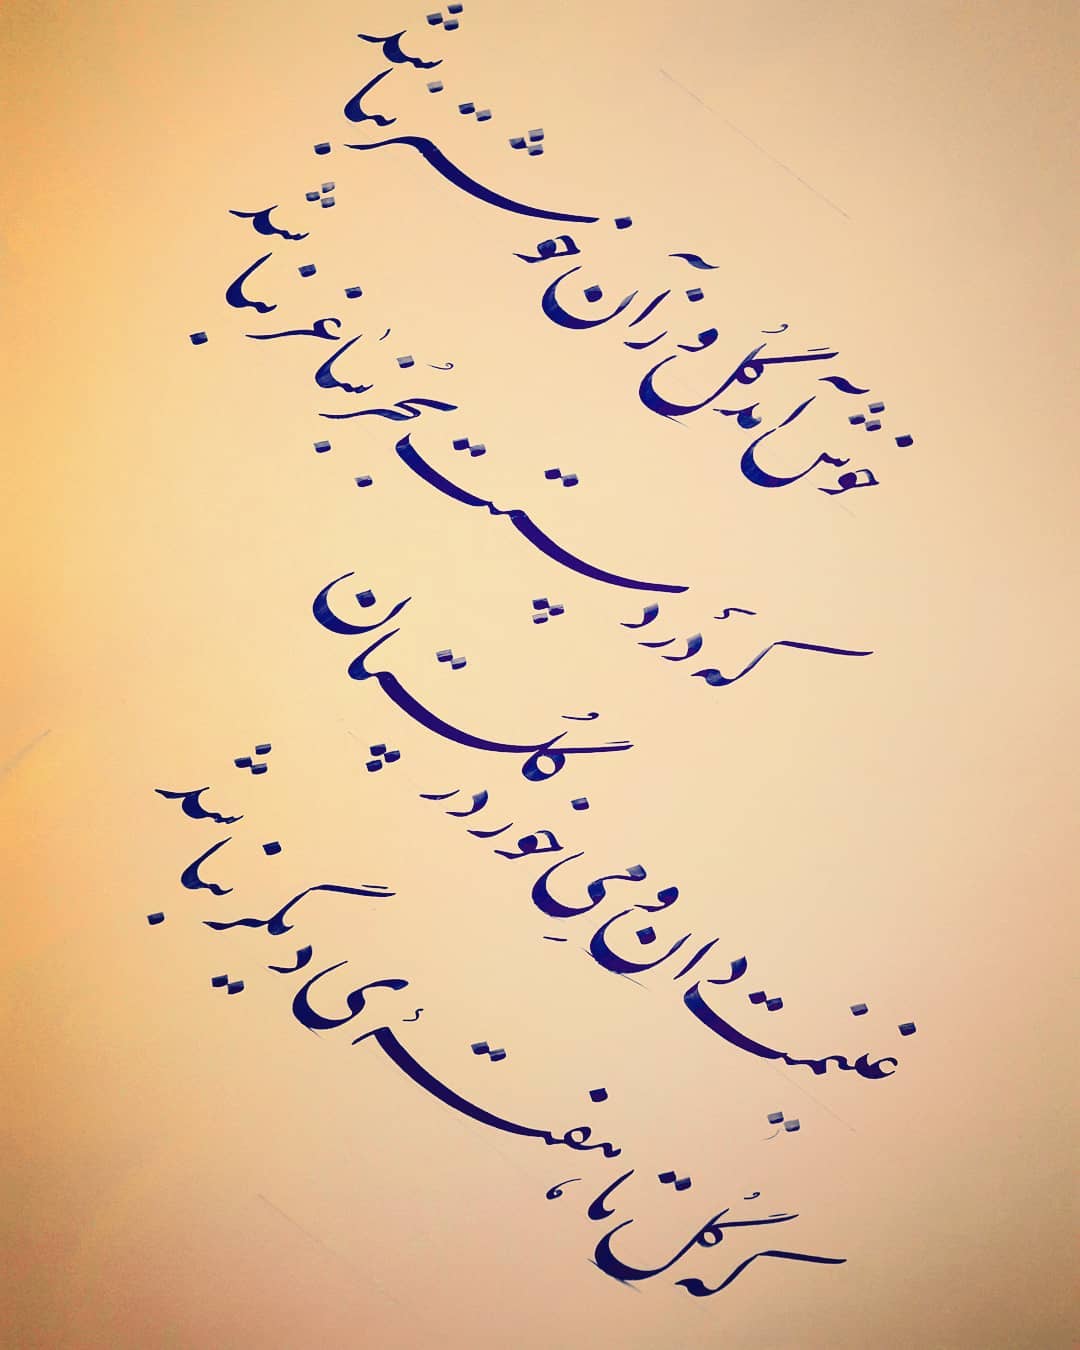 خوش آمد گُل وز آن خوشتر نباشد
که در دستت بجُز ساغر نباشد
غنیمت دان و می خور در گُلستان
که گُل تا هفتهٔ ی دیگر نباشد